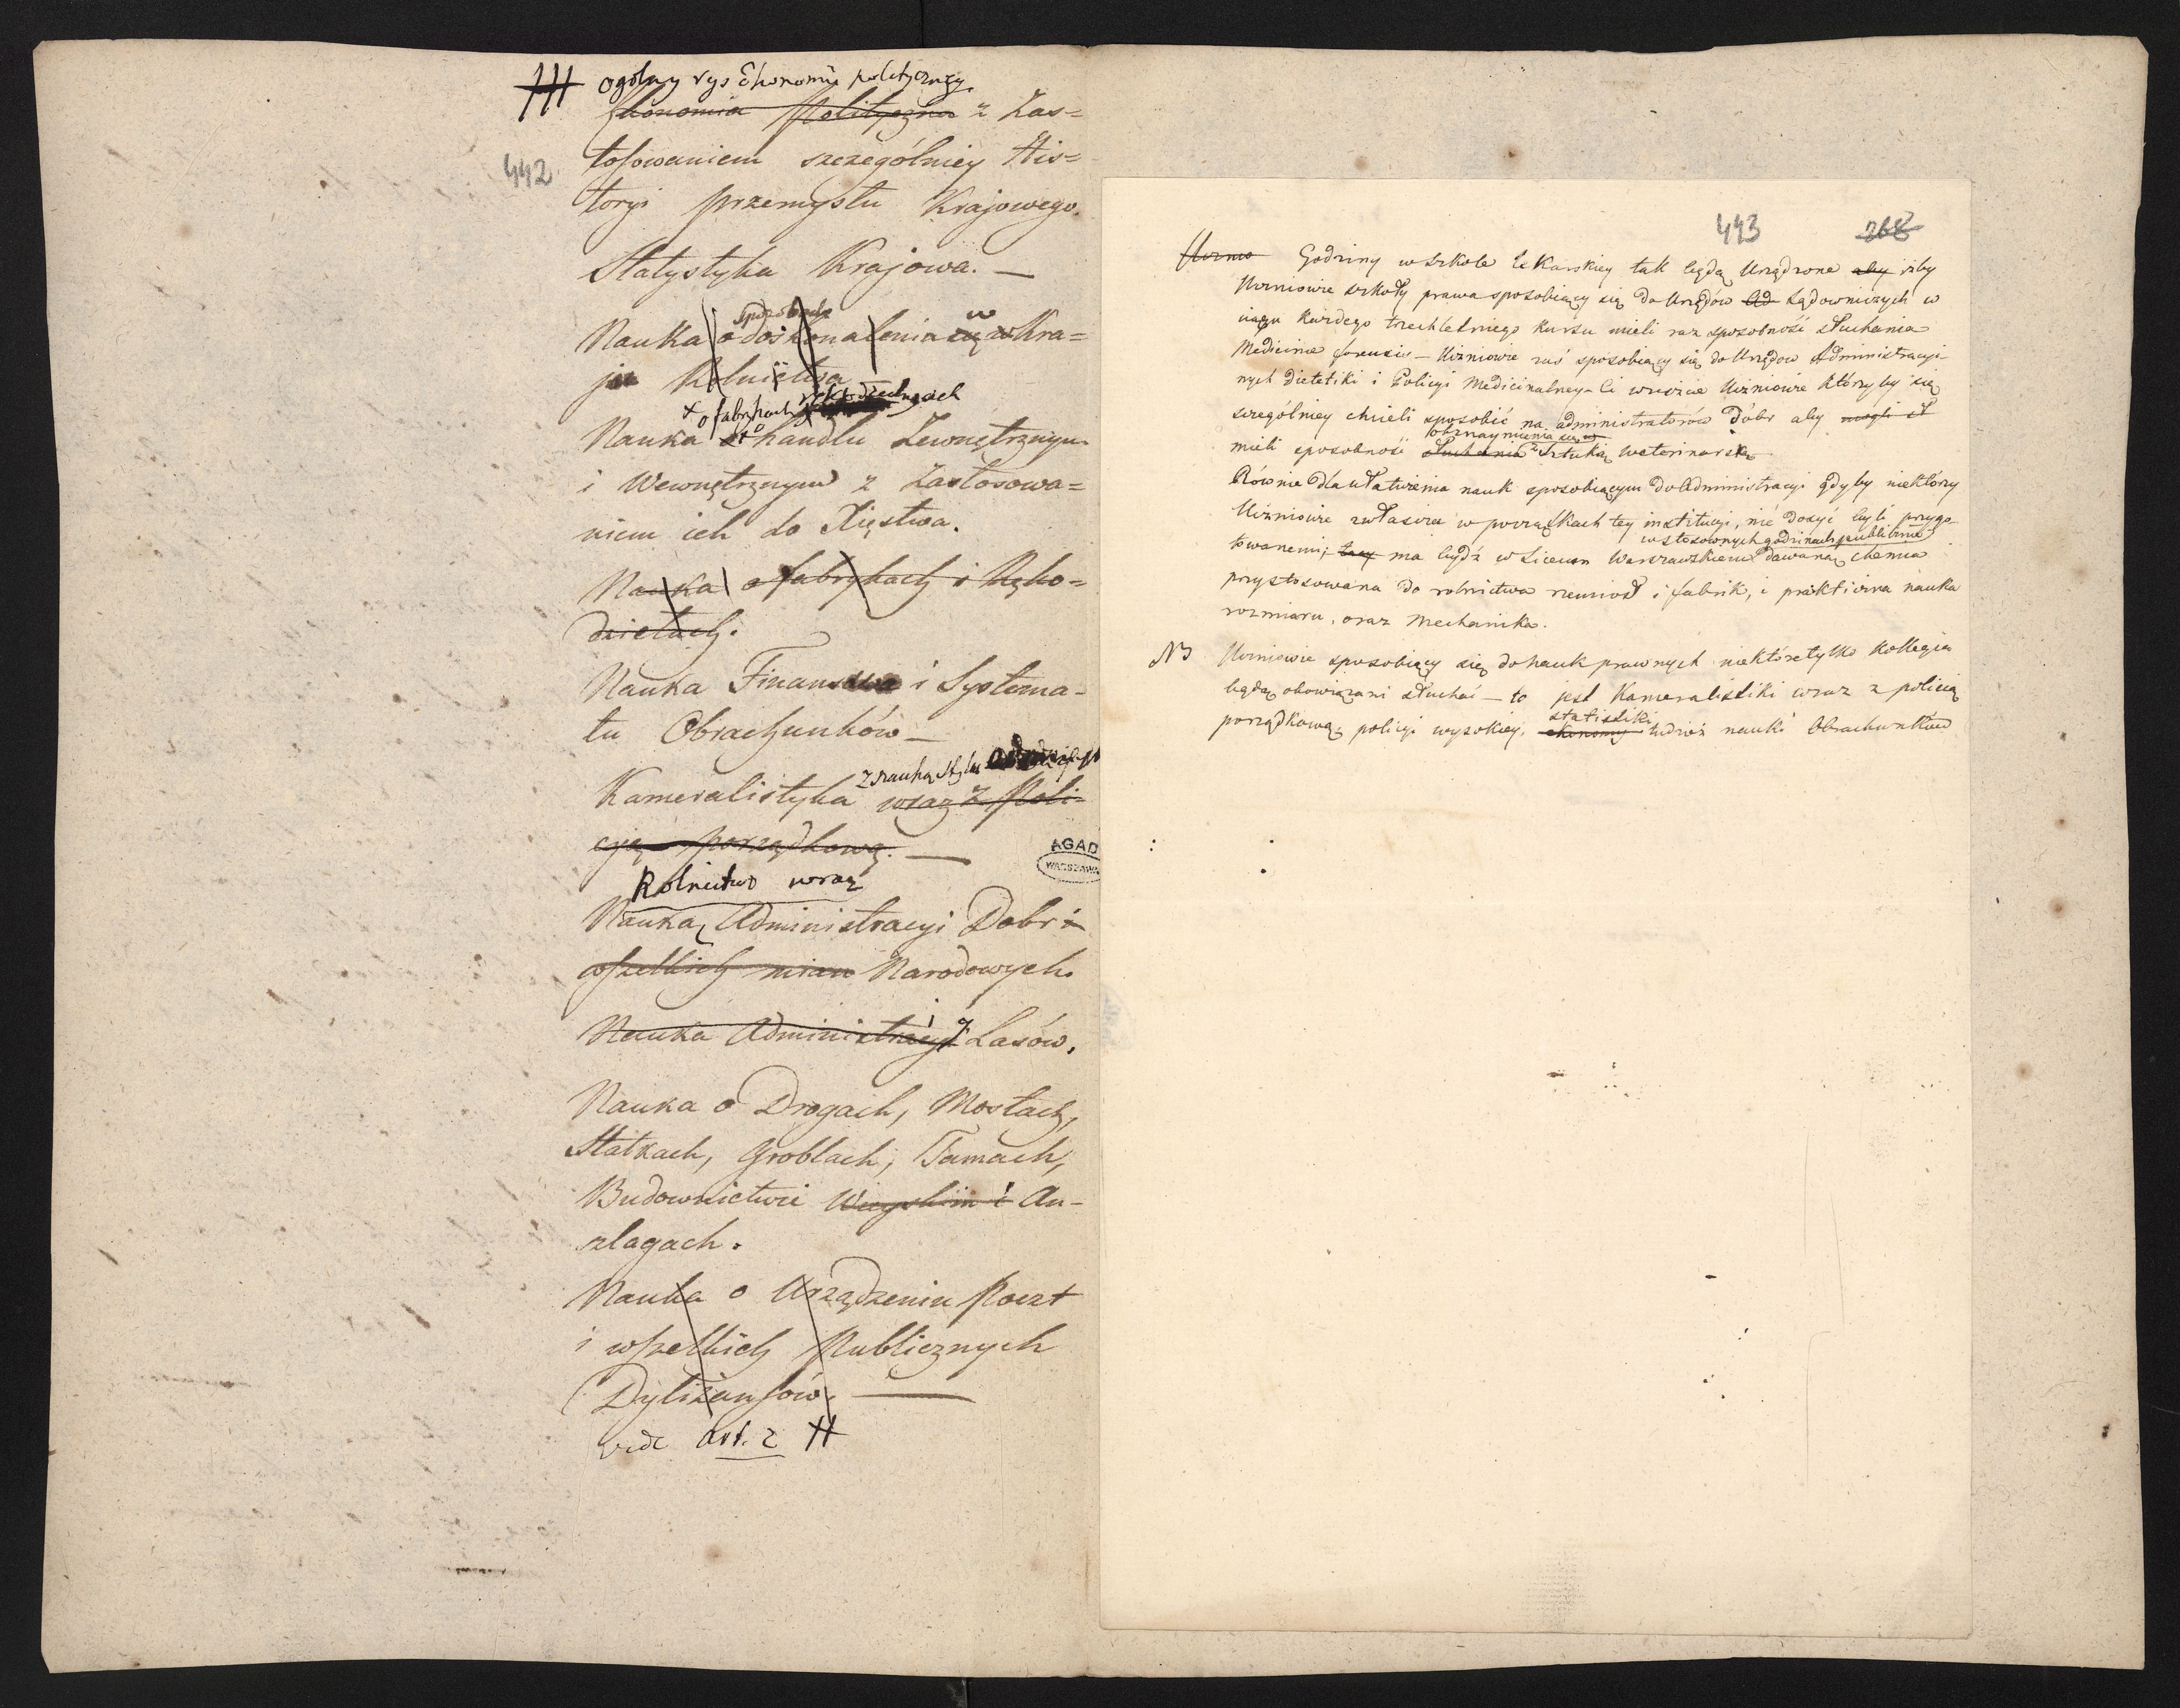 ogólny rys Ekonomii polityczney
Ekonomia Polityczna z Zas=
442
tosowaniem szczególniey His=
toryi przemysłu Krajowego.
Statystyka Krajowa. —
sposobach w
Nauka o doskonalenia się w Kra=
ju Rolnictwa
+ o fabrykach rękodzielnych
Nauka o handlu Zewnętrznym
i Wewnętrznym z Zastosowa=
niem ich do Xięstwa.
Nauka o fabrykach i Ręko=
dziełach.
Nauka Finansowa i Systema-
tu Obrachunków —
z nauką
Kameralistyka wraz z Poli-
cyją porządkową. —
AGAD
WARSZAWA
Rolnictwo wraz
Nauka Administracyi Dobr i
wszelkich mian Narodowych.
Nauka Administracyi i Lasów.
Nauka o Drogach, Mostach,
Statkach, Groblach, Tamach,
Budownictwie Wieyskim i An-
szlagach.
Nauka o Urządzeniu Poczt
i wszelkich Publicznych
Dyliżansów. —
vide Art. 2 #
443 268
Uczniow Godziny w szkole lekarskiey tak będą Urządzone aby iżby
Uczniowie szkoły prawa sposobiący się do Urzędów Ad Sądowniczych w
ciągu każdego trzechletniego kursu mieli raz sposobność słuchania
Medicinæ forensis — Uczniowie zaś sposobiący się do Urzędow Administracyi-
nych Dietetiki i Policyi Medicinalney — Ci wreszcie Uczniowie którzyby się
szczególniey chcieli sposobić na administratorów dóbr aby mogli sł
obznaymienia się
mieli sposobność słuchania z Sztuką weterinarską
Równie dla ułatwienia nauk sposobiącym do Administracyi gdyby niektórzy
Uczniowie zwłaszcza w początkach tey instytucyi, nie dosyć byli przygo-
w stosownych godzinach publicznie
towanemi; ma bydź w Liceum Warszawskiem dawana chemia
przystosowana do rolnictwa rzemiosł i fabrik, i praktyczna nauka
rozmiaru, oraz Mechanika.
NB Uczniowie sposobiący się do nauk prawnych niektóre tylko Kollegia
będą obowiązani słuchać — to jest Kameralistiki wraz z policią
statistiki
porządkową, policyi wysokiey, ekonomij tudzież nauki Obrachunków